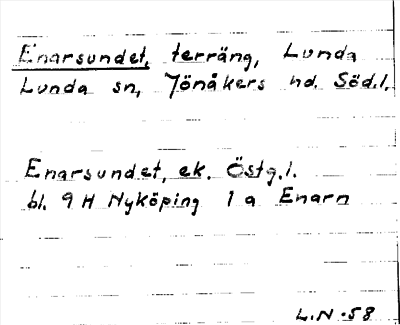 Enarsundet, terräng, Lunda
Lunda sn, Jönåkers hd. Söd.l.
Enarsundet, ek. Östg.l.
bl. 9 H Nyköping 1 a Enarn
L.N.58